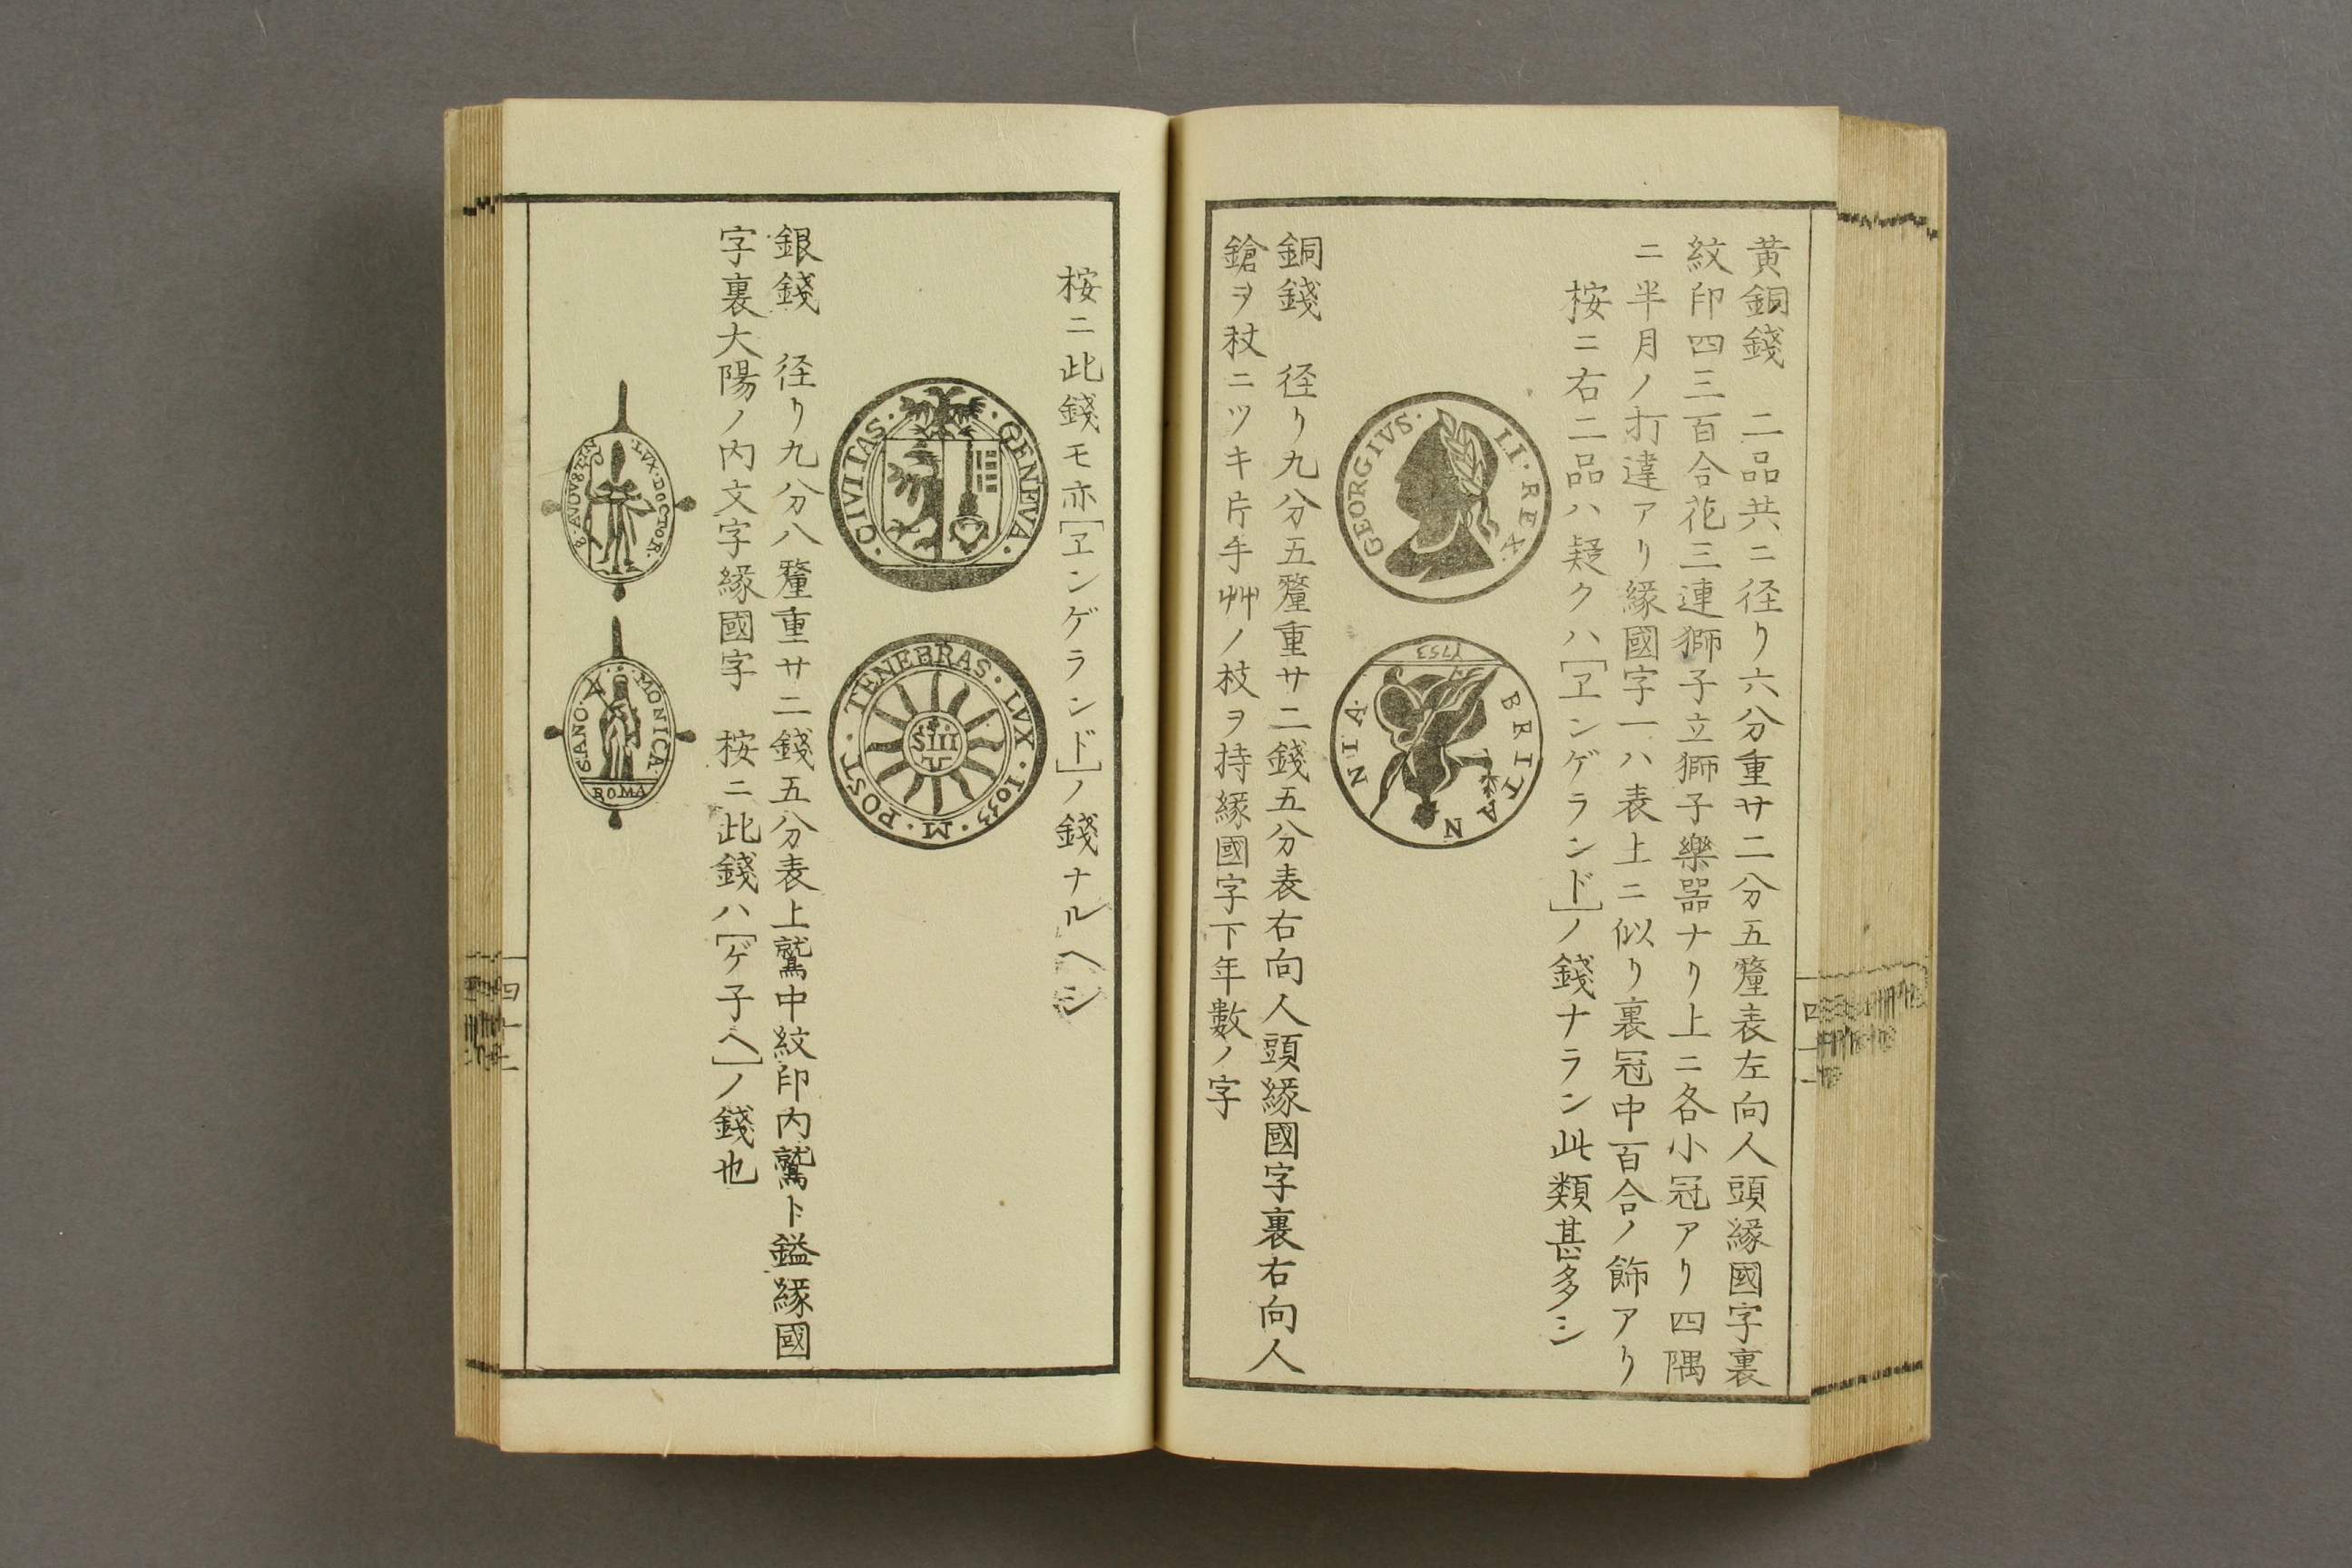 黄銅錢　二品共ニ径リ六分重サ二分五釐表左向人頭緣國字裏
紋印四三百合花三連獅子立獅子樂器ナリ上ニ各小冠アリ四隅
ニ半月ノ打違アリ緣國字一ハ表上ニ似リ裏冠中百合ノ飾アリ
桉ニ右二品ハ疑クハ[ヱンゲランド]ノ錢ナラン此類甚多シ
GEORGIVS· II·REX·
BRITANNIA·
1753
銅錢　径リ九分五釐重サ二錢五分表右向人頭緣國字裏右向人
鎗ヲ杖ニツキ片手艸ノ枝ヲ持緣國字下年數ノ字
桉ニ此錢モ亦[ヱンゲランド]ノ錢ナルヘシ
·CIVITAS· GENEVA·
POST·TENEBRAS·LVX·1053·M·
銀錢　径リ九分八釐重サ二錢五分表上鷲中紋印内鷲ト鎰緣國
字裏大陽ノ内文字緣國字　桉ニ此錢ハ[ゲ子ヘ]ノ錢也
·LVX·DOCTOR·
·MONICA·
ROMA
四十二